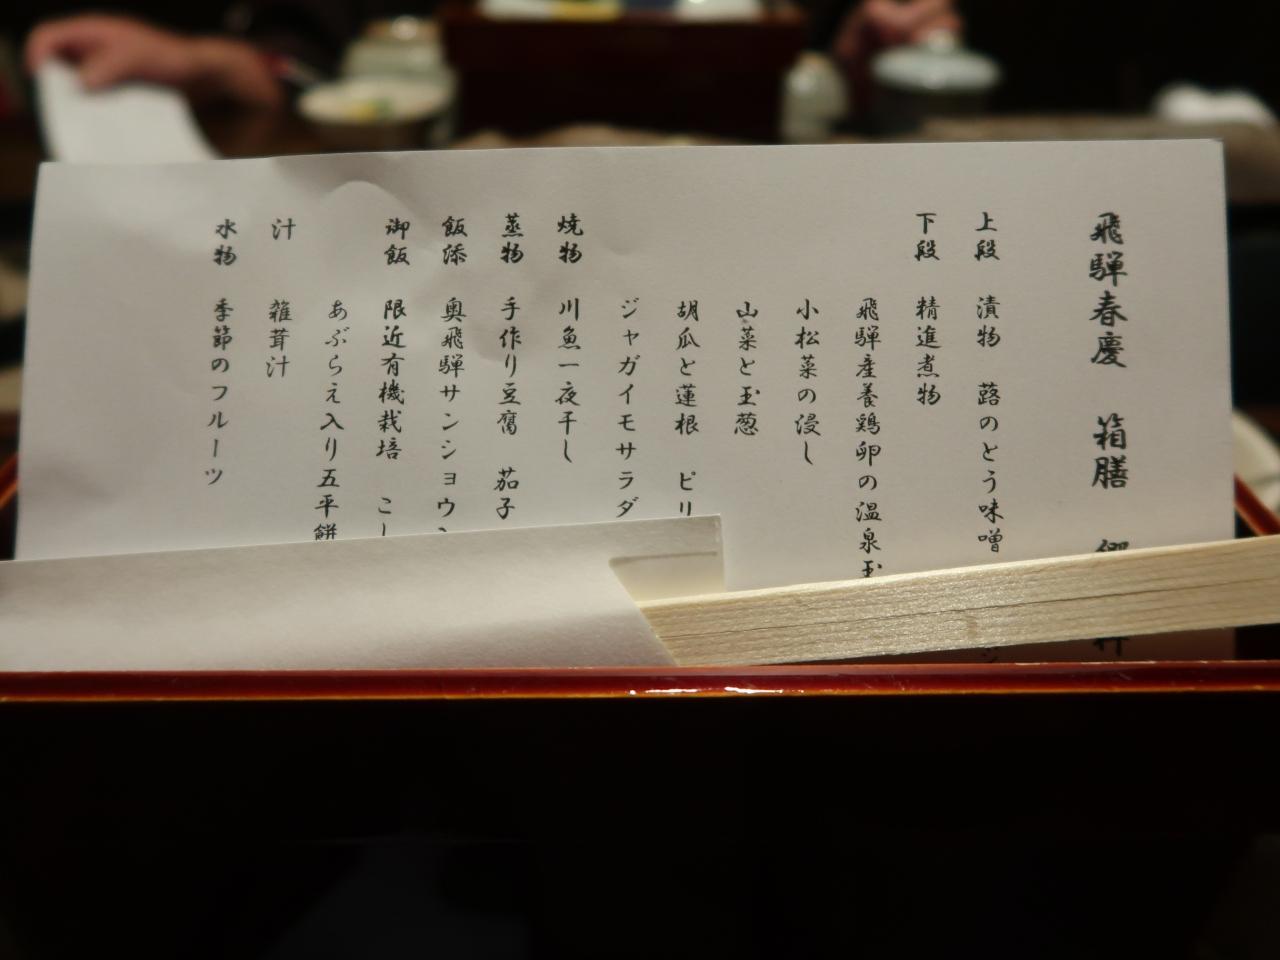 飛騨春慶 箱膳
上段 漬物 蕗のとう味噌
下段 精進煮物
飛騨産養鶏卵の温泉玉
小松菜の浸し
山菜と玉葱
胡瓜と蓮根 ピリ
ジャガイモサラダ
焼物 川魚一夜干し
蒸物 手作り豆腐 茄子
飯添 奥飛騨サンショウ
御飯 限近有機栽培 こし
あぶらえ入り五平餅
汁 雑茸汁
水物 季節のフルーツ